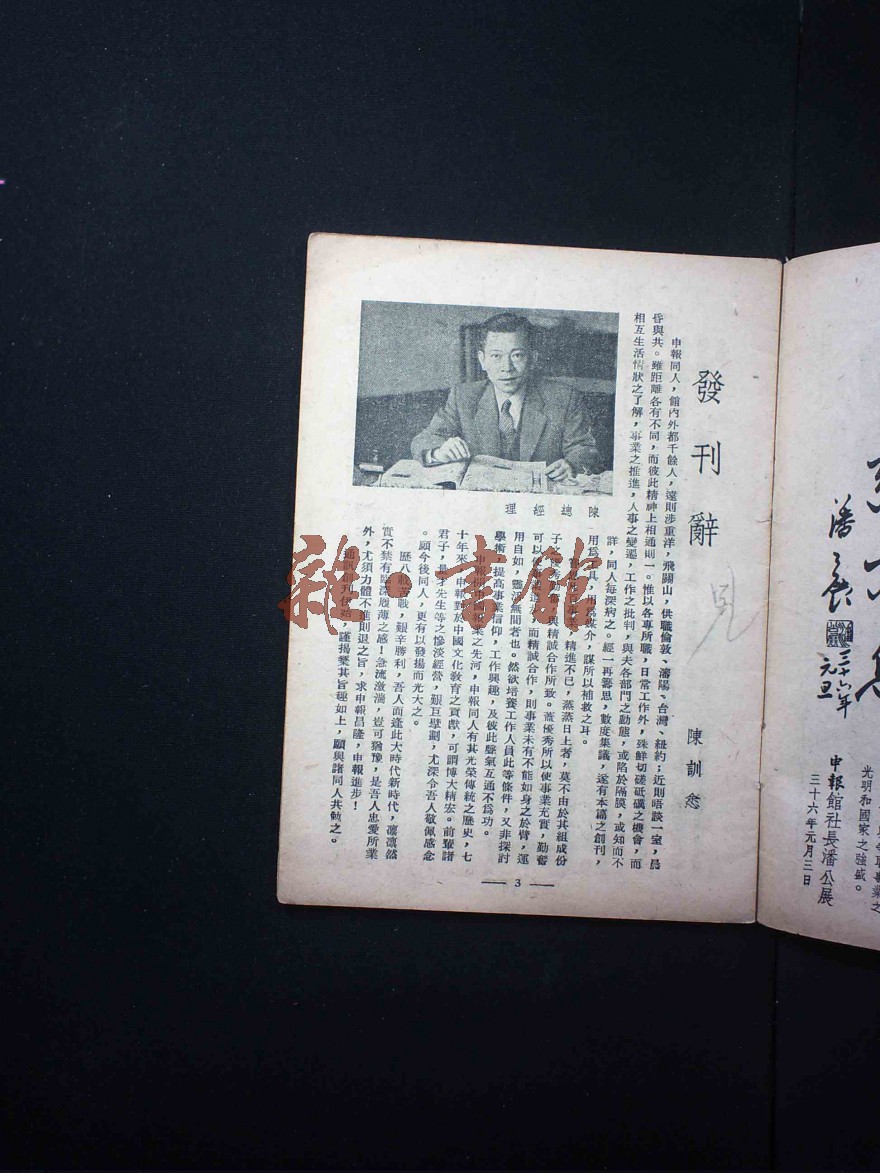 發刊辭
陳訓悆
申報同人，館內外都千餘人，遠則涉重洋，飛關山，供職倫敦、瀋陽、台灣、紐約；近則晤談一室，晨
昏與共。雖距離各有不同，而彼此精神上相通則一。惟以各專所職，日常工作外，殊鮮切磋砥礪之機會，而
相互生活情狀之了解，事業之推進，人事之變遷，工作之批判，與夫各部門之動態，或陷於隔膜，或知而不
詳，同人每深病之。經一再籌思，數度集議，遂有本篇之創刊，
用爲工具，用爲媒介，謀所以補救之耳。
事業，精進不已，蒸蒸日上者，莫不由於其組成份
子 與精誠合作所致。蓋優秀所以使事業充實，勤奮
可以使 而精誠合作，則事業未有不能如身之於臂，運
用自如，靈活無間者也。然欲培養工作人員此等條件，又非探討
學術，提高事業信仰，工作興趣，及彼此聲氣互通不爲功。
申報 中國報業之先河，申報同人有其光榮傳統之歷史，七
十年來，申報對於中國文化教育之貢獻，可謂博大精宏。前輩諸
君子， 先生等之慘淡經營，艱亙擘劃，尤深令吾人敬佩感念
。顧今後同人，更有以發揚而光大之。
歷八載苦戰，艱辛勝利，吾人而逢此大時代新時代，凜凜然
實不禁有臨深履薄之感！急流激湍，豈可猶豫，是吾人忠愛所業
外，尤須力體不進則退之旨，求申報昌隆，申報進步！
通訊創刊伊始，謹揚櫫其旨趣如上，願與諸同人共勉之。
陳總經理
3
潘公展
三十六年
元旦
光明和國家之強盛。
申報館社長潘公展
三十六年元月三日
雜·書館